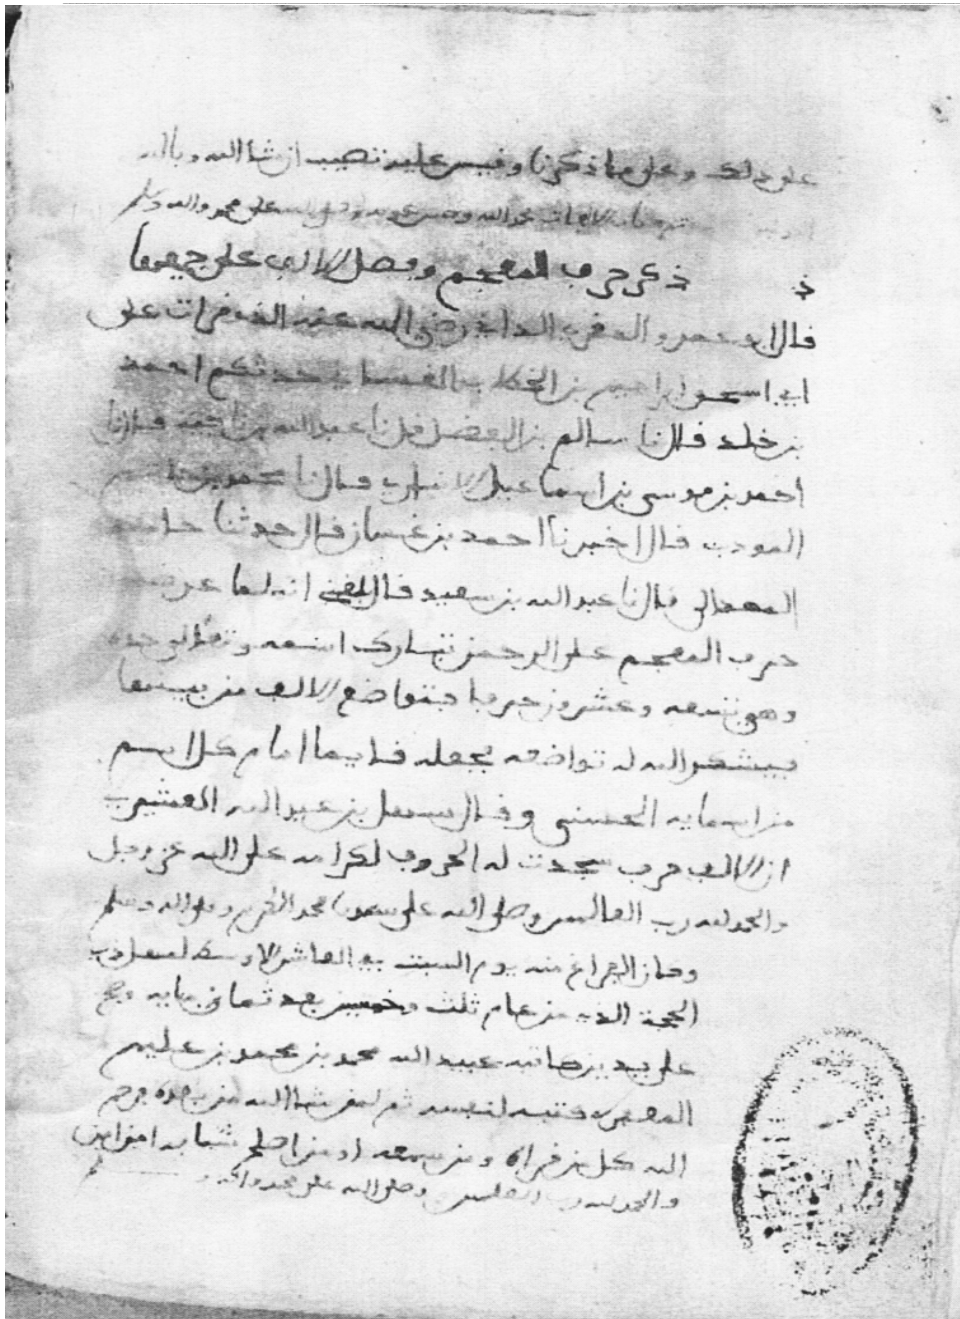 على ذلك وعلى ما ذكرنا وفيس عليه تصيب ان شا الله وبالله
على محمد واله وسلم
ذكر حرف المعجم وفضل الالف على جميعها
قال ابو عمرو المقرى الداني رضي الله عنه الفه قرات على
ابي اسحق ابراهيم بن الخطاب حدثكم احمد
بن خلد قال نا سالم بن الفضل قال نا عبد الله بن قال نا
احمد بن موسى بن اسماعيل الانباري قال نا محمد بن
المودب قال اخبرنا احمد بن غسان قال حدثنا حامد
قال نا عبد الله بن سعيد قال بلغني انه لما عرضت
حرف المعجم على الرحمن تبارك اسمه وتعالى جده
وهي تسعه وعشرون حرفا فتواضع الالف من بينها
فيشكر الله له تواضعه فجعله قايما امام كل اسم
من اسمايه الحسنى وقال سهل بن عبد الله
ان الالف حرف سجدت له الحروف لكرامه على الله عز وجل
والحمد لله رب العالمين وصلى الله على سيدنا محمد الكريم وعلى اله وسلم
وكان الفراغ منه يوم السبت في العاشر الاوسط لشهر ذي
الحجة الذي من عام ثلث وخمسين بعد ثماني مايه
على يد بن كاتبه عبيد الله محمد بن محمد بن
كتبه لنفسه ثم لمن شا الله من بعده فرحم
الله كل من قراه ومن سمعه او من اصلح شيا به امين امين
والحمد لله رب العلمين وصلى الله على محمد واله